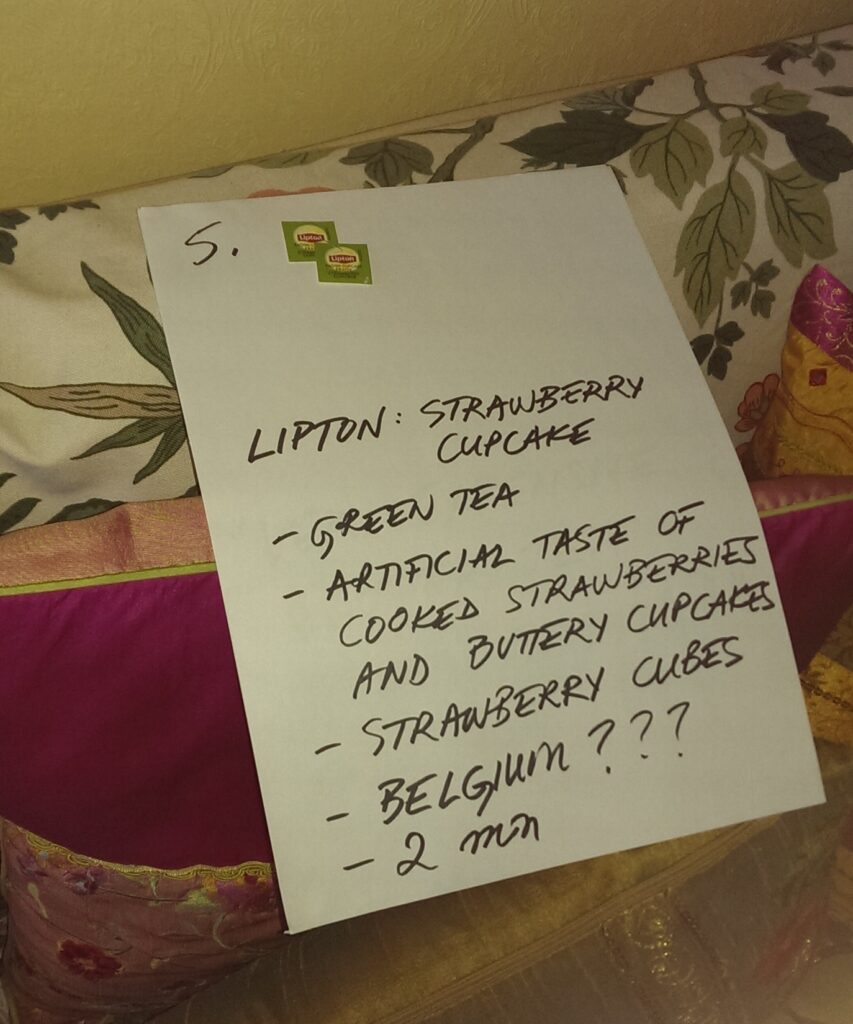 5.
Lipton
Lipton
LIPTON: STRAWBERRY
CUPCAKE
- GREEN TEA
- ARTIFICIAL TASTE OF
COOKED STRAWBERRIES
AND BUTTERY CUPCAKES
- STRAWBERRY CUBES
- BELGIUM ???
- 2 mn